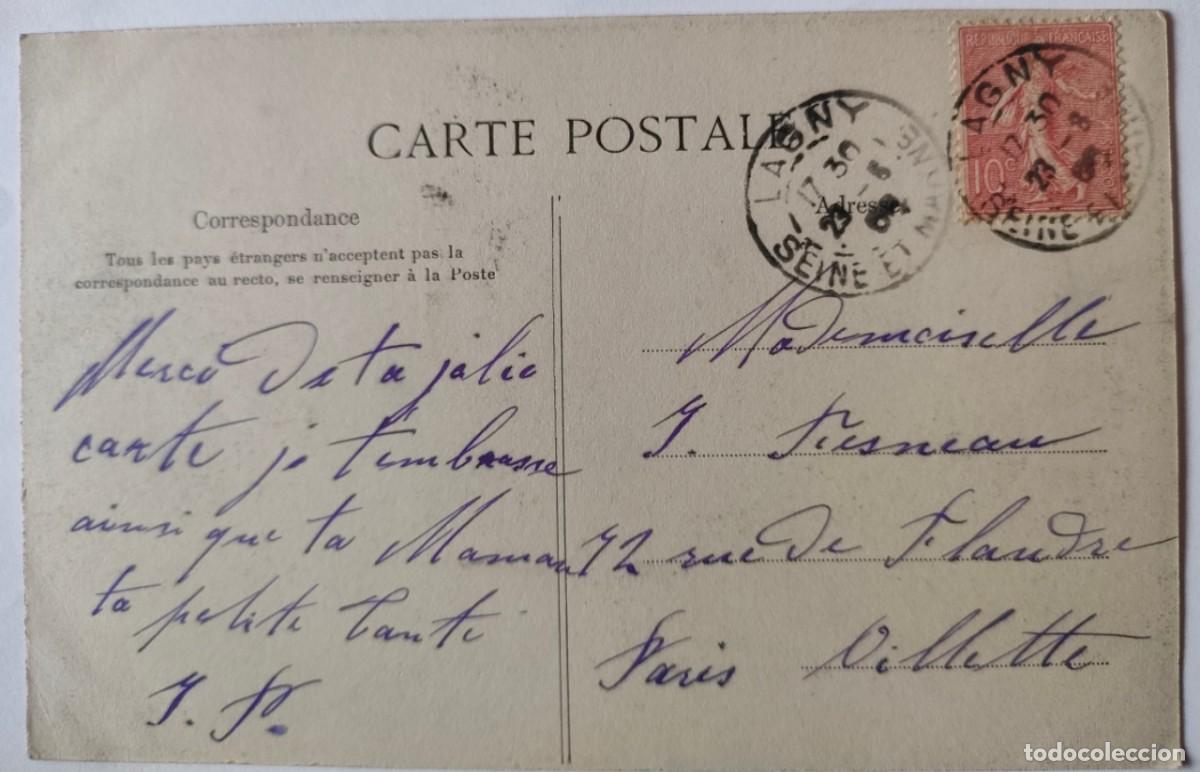 CARTE POSTALE
Correspondance
Tous les pays étrangers n'acceptent pas la
correspondance au recto, se renseigner à la Poste
Adresse
RÉPUBLIQUE FRANÇAISE
10c
LAGNY
17 30
23 -8
SEINE ET MARNE
LAGNY
17 30
23 -8
SEINE ET
Merci de ta jolie
carte je t'embrasse
ainsi que ta Maman
ta petite Tante
J. P.
Mademoiselle
J. Fresneau
72 rue de Flandre
Paris Villette
todocoleccion